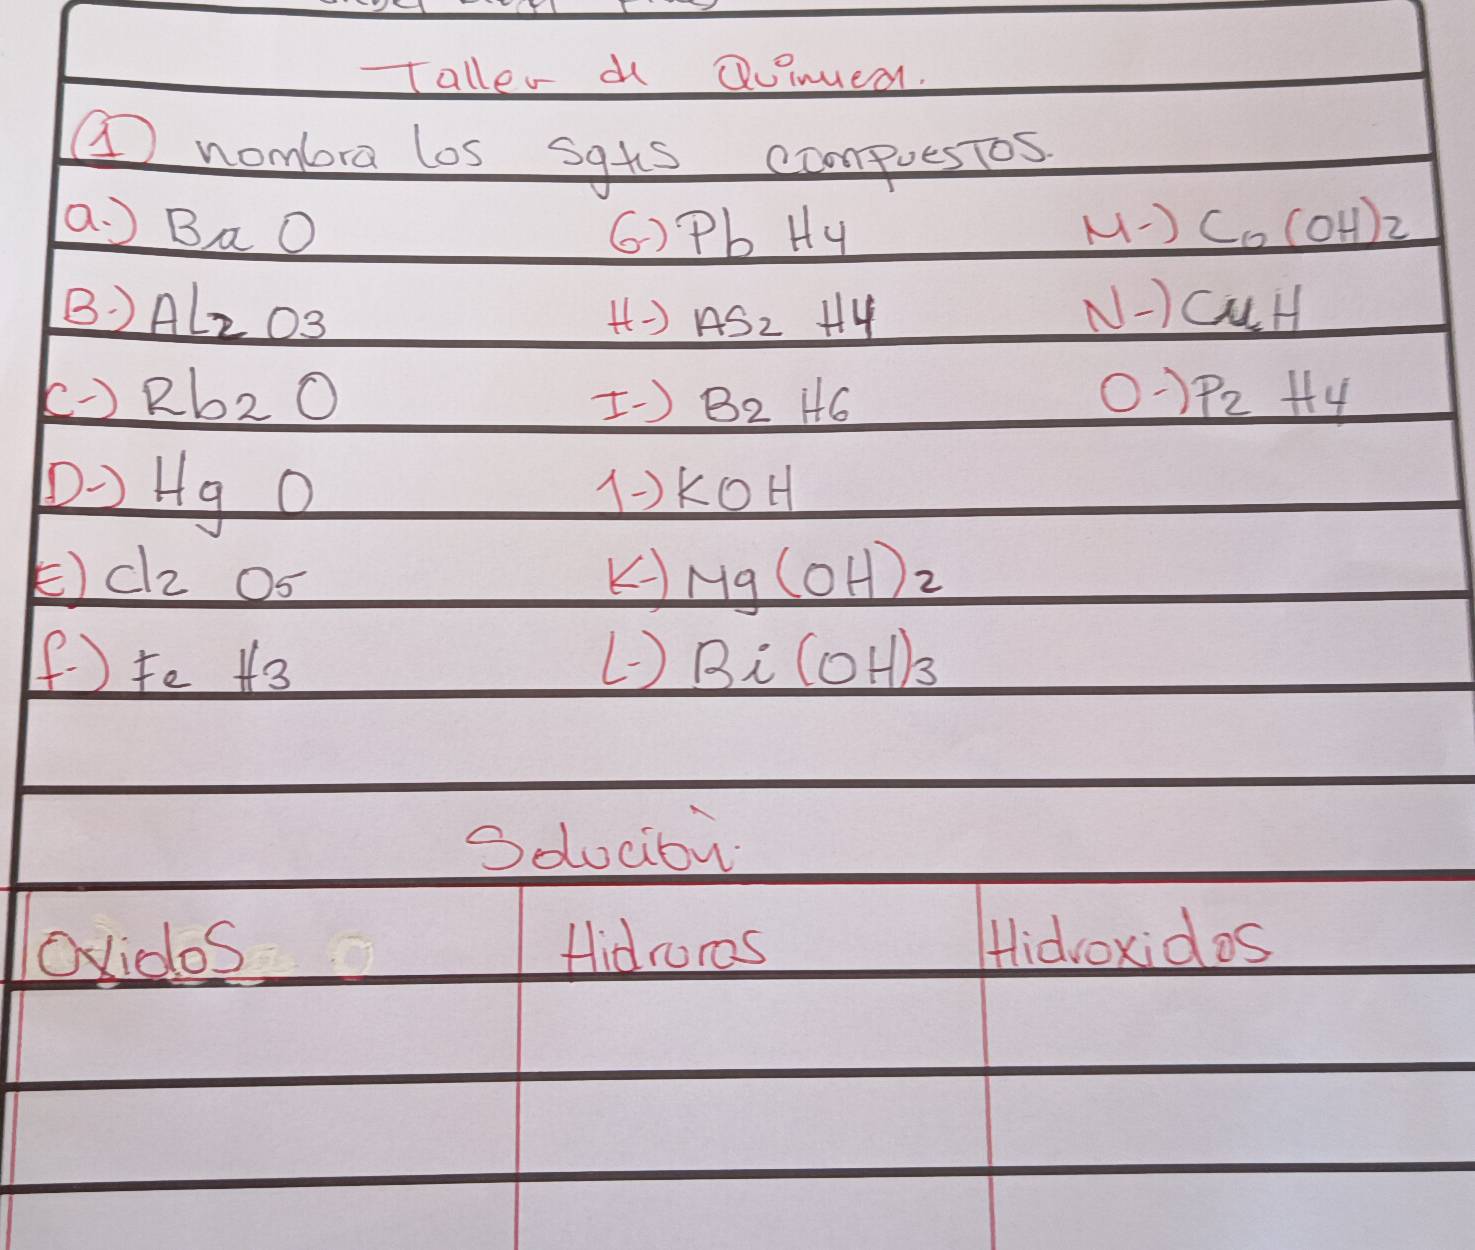 Taller de Química.
① nombra los sgts compuestos.
a.) Ba O G) Pb H4 M-) Co (OH)2
B.) Al2 O3 H-) AS2 H4 N-) CuH
C-) Rb2 O I-) B2 H6 O-) P2 H4
D-) Hg O 1-) KOH
E) Cl2 O5 K-) Mg (OH)2
f-) Fe H3 L-) Bi (OH)3
Solución.
Oxidos Hidruros Hidroxidos